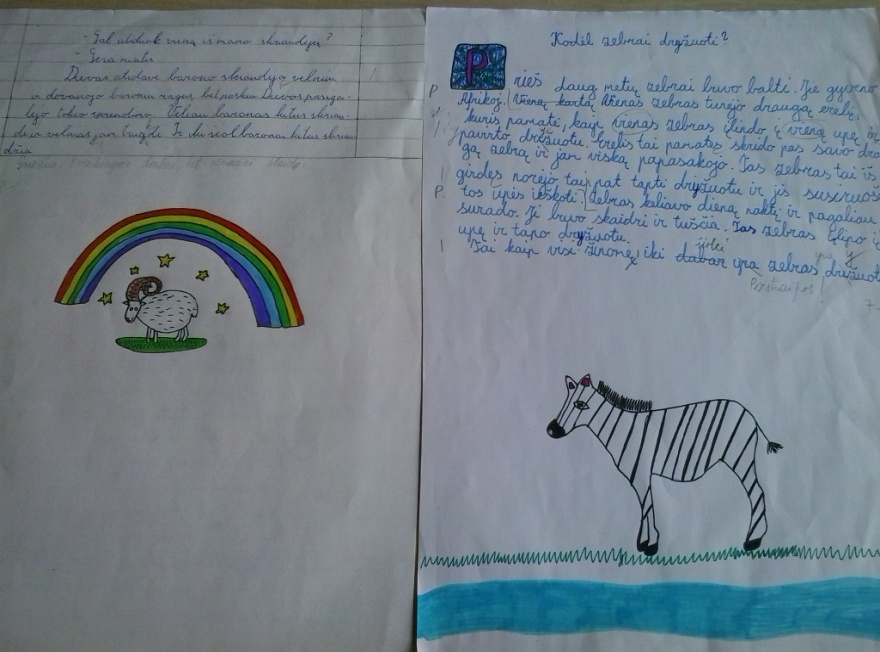 - Gal atduok vieną iš mano skrandžių?
- Gera mintis
Dievas atidavė barono skrandį velniui
ir dovanojo baronui ragus, bet paskui Dievas pasigai-
lėjo tokio sprendimo. Vėliau baronas kitus skran-
dėja velnias jam Ir iki šiol baronai kitus skran
džia
Kodėl zebrai dryžuoti?
Prieš daug metų zebrai buvo balti. Jie gyveno
Afrikoj. Vieną kartą Vienas zebras turėjo draugą erelį,
kuris pamatė, kaip vienas zebras įlindo į vieną upę ir
pavirto dryžuotu. Erelis tai pamatęs skrido pas savo drau
gą zebrą ir jam viską papasakojo. Tas zebras tai iš
girdęs norėjo taip pat tapti dryžuotu ir jis susiruošė
tos upės ieškoti. Zebras keliavo dieną naktį ir pagaliau
surado. Ji buvo skaidri ir tuščia. Tas zebras įlipo į
upę ir tapo dryžuotu.
šiolei yra
Tai kaip visi žinome, iki dabar yra zebras dryžuot
!